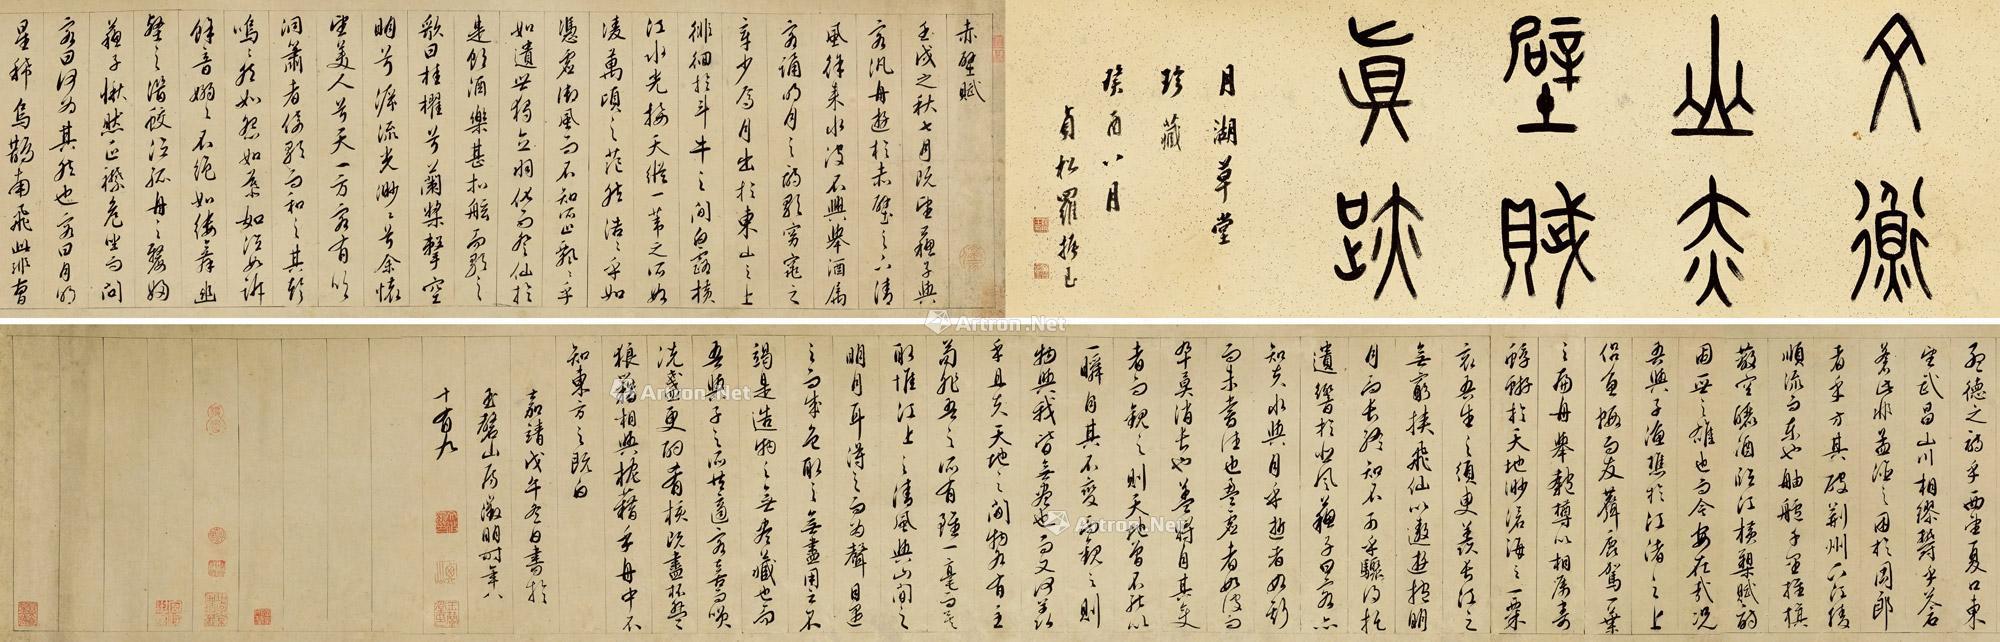 文衡
山赤
壁賦
眞跡
月湖草堂
珍藏
癸酉八月
貞松羅振玉
赤壁賦
壬戌之秋七月既望蘇子與
客汎舟遊於赤壁之下清
風徐来水波不興舉酒屬
客誦明月之詩歌窈窕之
章少焉月出於東山之上
徘徊於斗牛之間白露橫
江水光接天縱一葦之所如
凌萬頃之茫然浩々乎如
憑虛御風而不知所止飄々乎
如遺世獨立羽化而登仙於
是飲酒樂甚扣舷而歌之
歌曰桂櫂兮蘭槳擊空
明兮泝流光渺々兮余懷
望美人兮天一方客有吹
洞簫者倚歌而和之其聲
嗚々然如怨如慕如泣如訴
餘音嫋々不絕如縷舞幽
壑之潛蛟泣孤舟之嫠婦
蘇子愀然正襟危坐而問
客曰何為其然也客曰月明
星稀烏鵲南飛此非曹
孟德之詩乎西望夏口東
望武昌山川相繆鬱乎蒼
蒼此非孟德之困於周郎
者乎方其破荊州下江陵
順流而東也舳艫千里旌旗
蔽空釃酒臨江橫槊賦詩
固一世之雄也而今安在哉況
吾與子漁樵於江渚之上
侶魚蝦而友麋鹿駕一葉
之扁舟舉匏樽以相屬寄
蜉蝣於天地渺滄海之一粟
哀吾生之須臾羨長江之
無窮挾飛仙以遨遊抱明
月而長終知不可乎驟得托
遺響於悲風蘇子曰客亦
知夫水與月乎逝者如斯
而未嘗往也盈虛者如彼而
卒莫消長也蓋將自其變
者而觀之則天地曾不能以
一瞬自其不變而觀之則
物與我皆無盡也而又何羨
乎且夫天地之間物各有主
苟非吾之所有雖一毫而莫
取惟江上之清風與山間之
明月耳得之而為聲目遇
之而成色取之無盡用之不
竭是造物之無盡藏也而
吾與子之所共適客喜而笑
洗盞更酌肴核既盡杯盤
狼籍相與枕藉乎舟中不
知東方之既白
嘉靖戊午冬日書於
玉磬山房徵明時年八
十有九
Artron.Net
Artron.Net
Artron.Net
Artron.Net